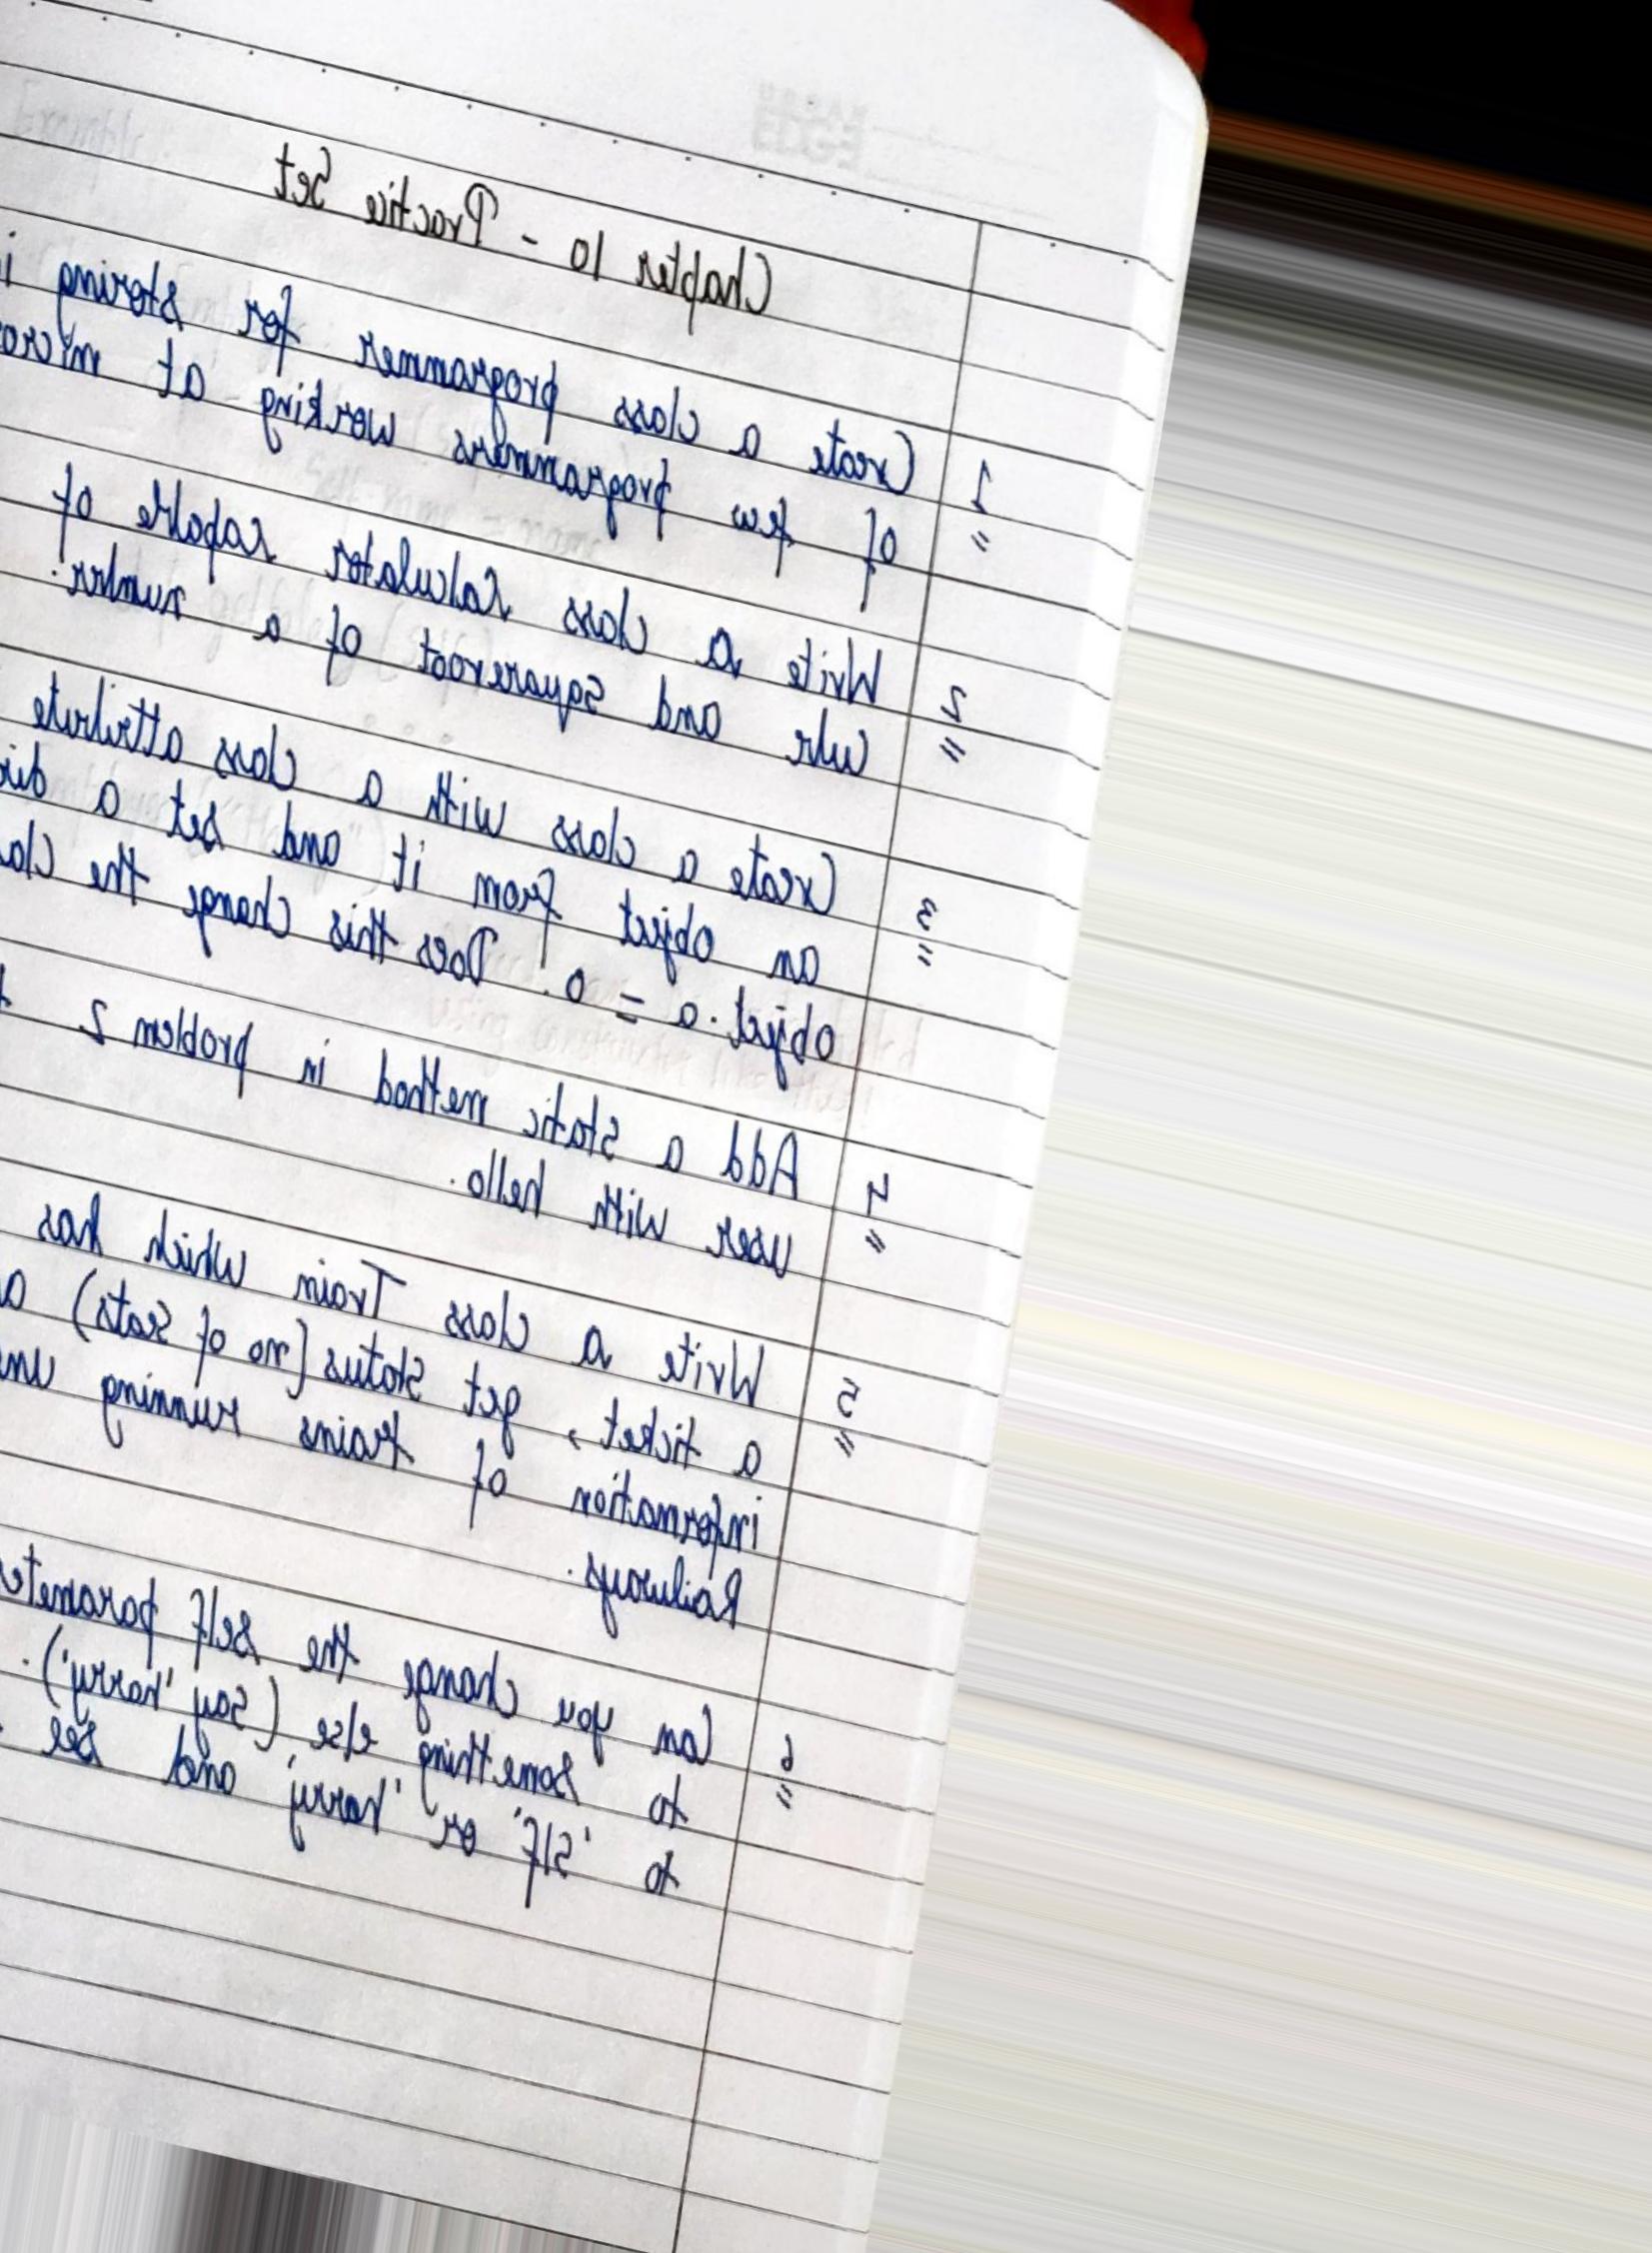 Chapter 10 - Practice Set
1 Create a class programmer for storing
of few programmers working at
2 Write a class calculator capable of
cube and squareroot of a number.
3 Create a class with a class attribute
an object from it and set a
object.a = 0. Does this change the
4 Add a static method in problem 2
user with hello.
5 Write a class Train which has
a ticket, get status (no of seats)
information of trains running
Railways.
6 Can you change the self
to something else (say 'harry').
to 'slf' or 'harry' and see